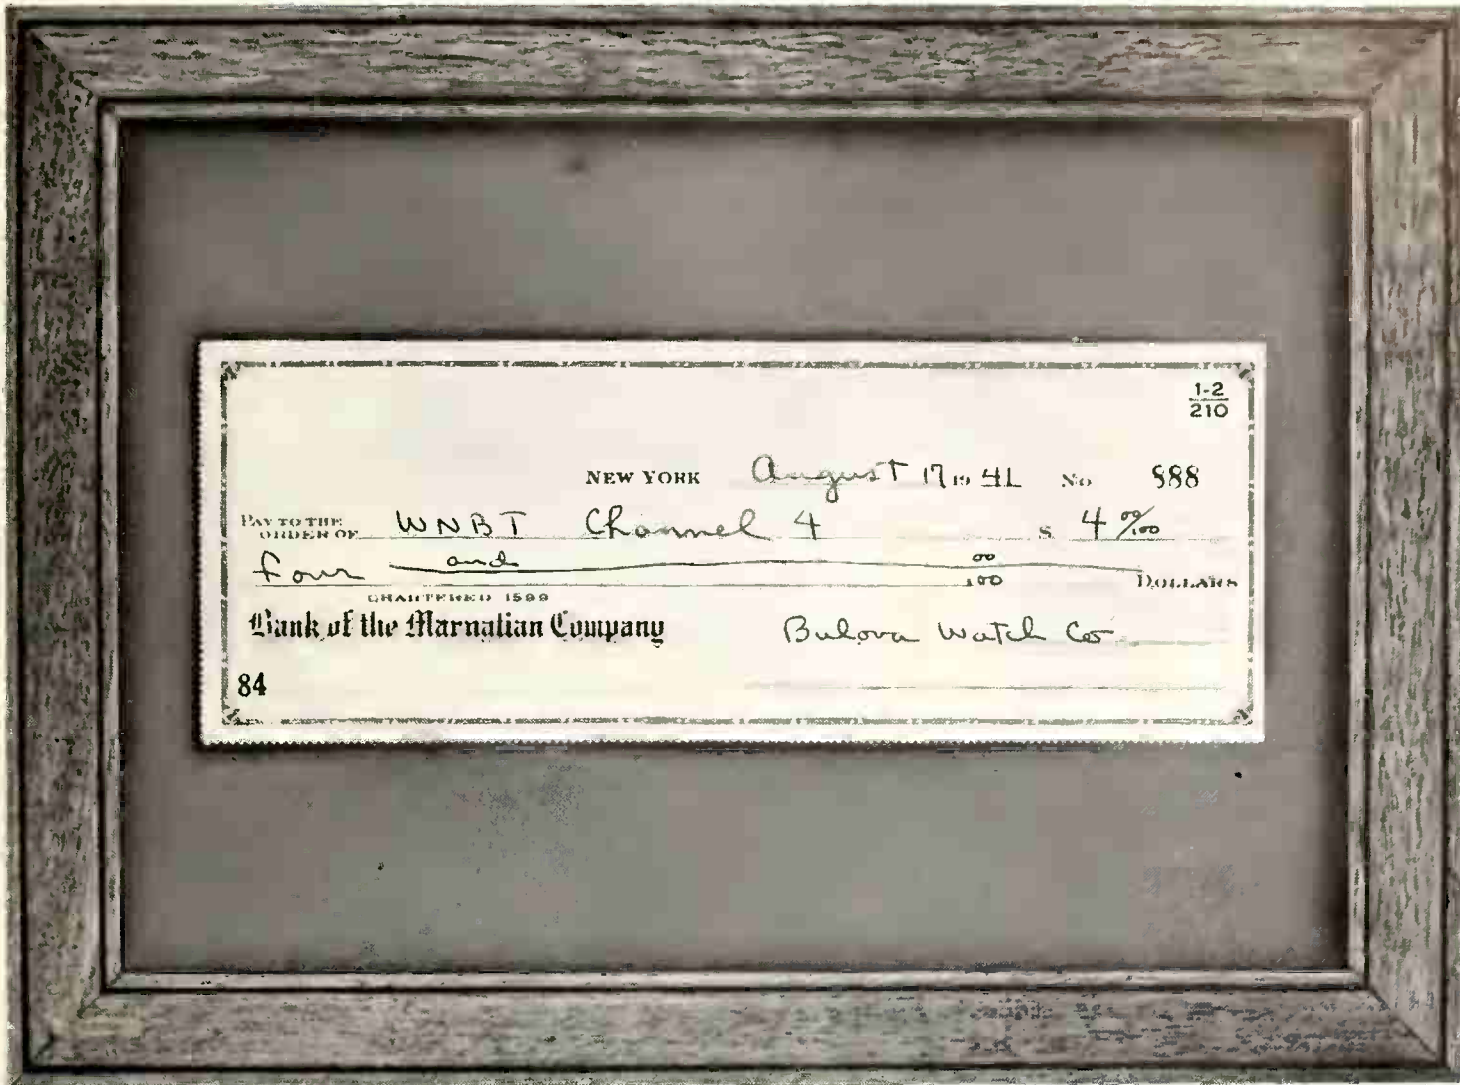 1-2
210
NEW YORK August 17 19 41 No 888
PAY TO THE
ORDER OF WNBT Channel 4 $ 4 00/100
Four and 00/100 DOLLARS
CHARTERED 1599
Bank of the Marnatian Company
Bulova Watch Co
84